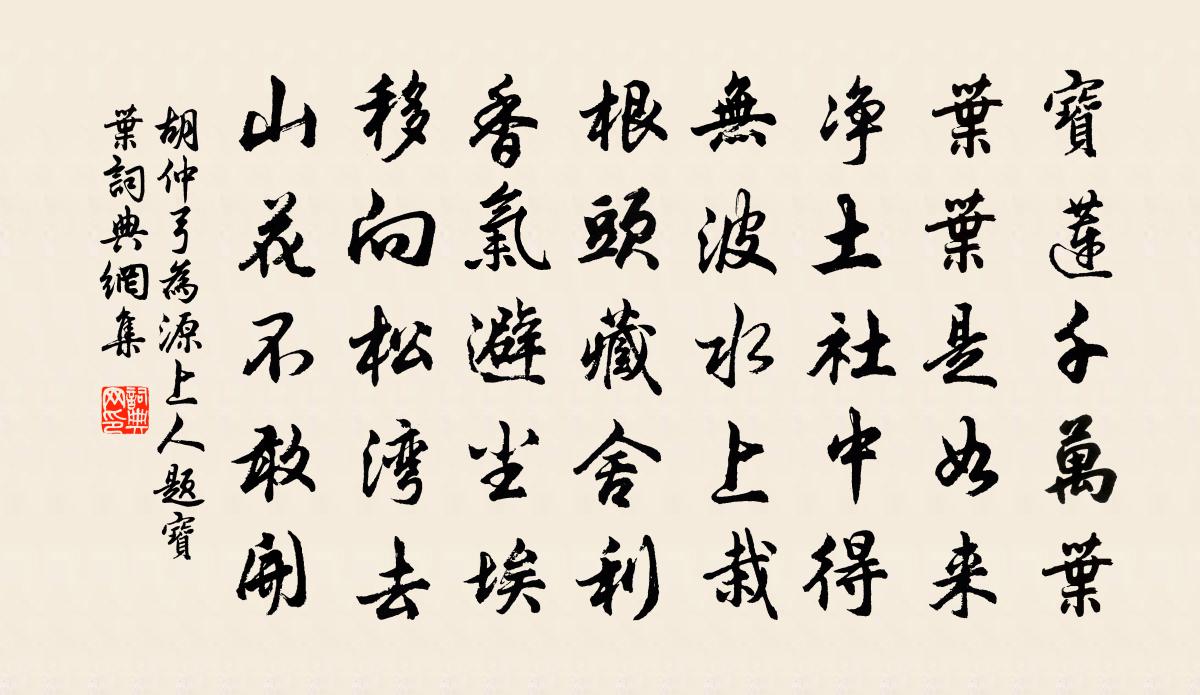 寶蓮千萬葉
葉葉是如来
淨土社中得
無波水上栽
根頭藏舍利
香氣避尘埃
移向松湾去
山花不敢開
胡仲弓為源上人题寶
葉詞典網集
詞典
网印